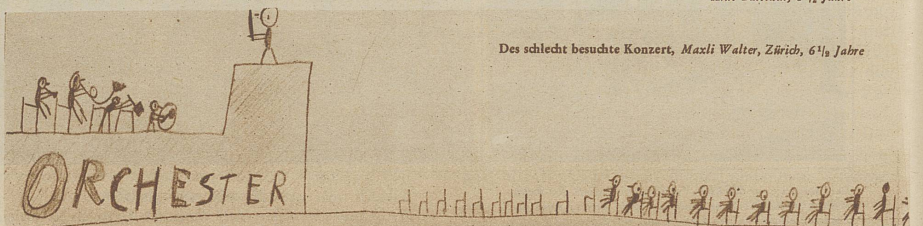 Des schlecht besuchte Konzert, Maxli Walter, Zürich, 6 1/2 Jahre
ORCHESTER